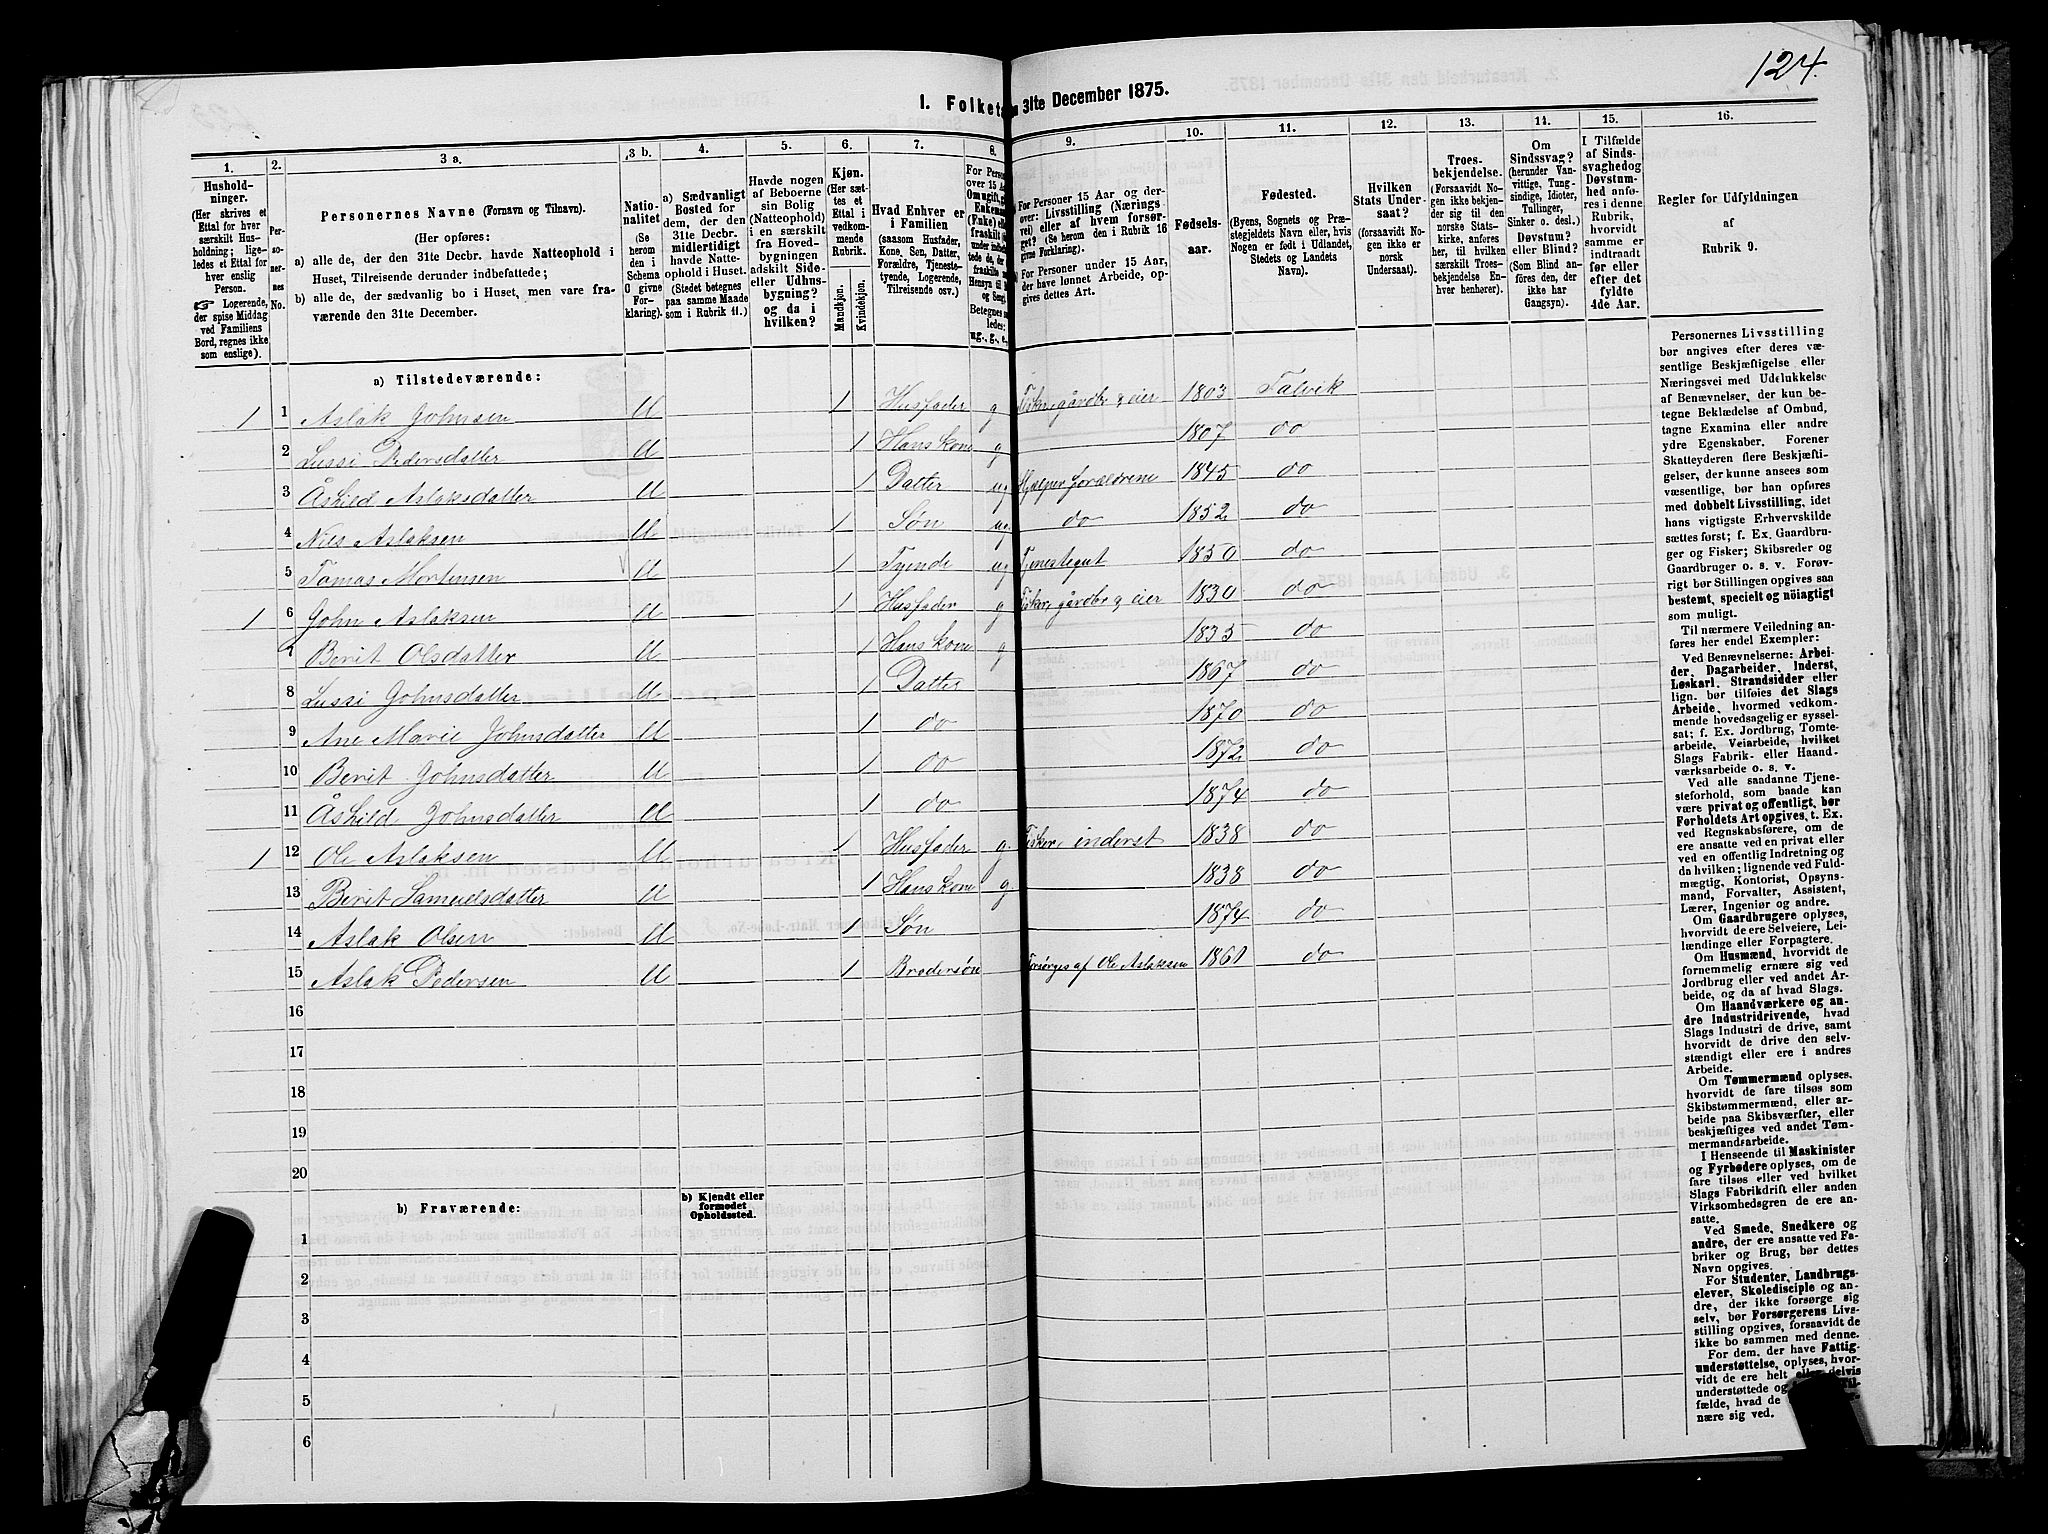 124.
I. Folketæ
n 31te December 1875.
1. 2. 3 a. 3 b. 4. 5. 6. 7. 8. 9. 10. 11. 12. 13. 14. 15. 16.
Hushold-
ninger.
(Her skrives et
Ettal for hver
særskilt Hus-
holdning; lige-
ledes et Ettal for
hver enslig
Person.
☞ Logerende,
der spise Middag
ved Familiens
Bord, regnes ikke
som enslige).
Per-
so-
ner-
nes
No.
Personernes Navne (Fornavn og Tilnavn).
(Her opføres:
a) alle de, der den 31te Decbr. havde Natteophold i
Huset, Tilreisende derunder indbefattede;
b) alle de, der sædvanlig bo i Huset, men vare fra-
værende den 31te December.
Natio-
nalitet
(Se
herom
den i
Schema
C givne
For-
klaring).
a) Sædvanligt
Bosted for
dem, der den
31te Decbr.
midlertidigt
havde Natte-
ophold i Huset.
(Stedet betegnes
paa samme Maade
som i Rubrik 11.)
Havde nogen
af Beboerne
sin Bolig
(Natteophold)
i en særskilt
fra Hoved-
bygningen
adskilt Side-
eller Udhus-
bygning?
og da i
hvilken?
Kjøn.
(Her sæt-
tes et
Ettal i
vedkom-
mende
Rubrik.
Mandkjøn.
Kvindekjøn.
Hvad Enhver er
i Familien
(saasom Husfader,
Kone, Søn, Datter,
Forældre, Tjeneste-
tyende, Logerende,
Tilreisende osv.)
For Person
over 15 Aar
Om ugift, gi
Enkeman
(Enke) eller
fraskilt
Betegnes saa-
ledes:
ug., g., e.,
For Personer 15 Aar og der-
over: Livsstilling (Nærings
vei) eller af hvem forsør-
get? (Se herom den i Rubrik 16
givne Forklaring).
For Personer under 15 Aar,
der have lønnet Arbeide, op-
gives dettes Art.
Fødsels-
aar.
Fødested.
(Byens, Sognets og Præ-
stegjeldets Navn, eller, hvis
Nogen er født i Udlandet,
Stedets og Landets
Navn).
Hvilken
Stats Under-
saat?
(forsaavidt No-
gen ikke er
norsk
Undersaat).
Troes-
bekjendelse.
(Forsaavidt No-
gen ikke bekjen-
der sig til den
norske Stats-
kirke, anføres
her, til hvilken
særskilt Troes-
bekjendelse En-
hver henhører).
Om
Sindssvag?
(herunder Van-
vittige, Tung-
sindige, Idioter,
Tullinger,
Sinker o. desl.)
Døvstum?
eller Blind?
(Som Blind an-
føres den, der
ikke har
Gangsyn).
I Tilfælde
af Sinds-
svaghed og
Døvstum-
hed anfø-
res i denne
Rubrik,
hvorvidt
samme er
indtraadt
før eller
efter det
fyldte
4de Aar.
Regler for Udfyldningen
af
Rubrik 9.
a) Tilstedeværende:
1 1 Aslak Johnsen U 1 Husfader g Fisker, gårdbr & eier 1803 Talvik
2 Lussi Pedersdatter U 1 Hans kone g 1807 do
3 Åshild Aslaksdatter U 1 Datter ug Hjælper forældrene 1845 do
4 Nils Aslaksen U 1 Søn ug. do 1852 do
5 Tomas Mortensen U 1 Tyende ug Tjenestegut 1850 do
1 6 John Aslaksen U 1 Husfader g Fisker, gårdbr & eier 1830 do
7 Berit Olsdatter U 1 Hans kone g 1835 do
8 Lussi Johnsdatter U 1 Datter 1867 do
9 Ane Marie Johnsdatter U 1 do 1870 do
10 Berit Johnsdatter U 1 do 1872 do
11 Åshild Johnsdatter U 1 do 1874 do
1 12 Ole Aslaksen U 1 Husfader g. Fisker, inderst 1838 do
13 Berit Samuelsdatter U 1 Hans kone g. 1838 do
14 Aslak Olsen U 1 Søn 1874 do
15 Aslak Pedersen U 1 Brodersøn Forsørges af Ole Aslaksen 1861 do
16
17
18
19
20
b) Fraværende:
b) Kjendt eller
formodet
Opholdssted.
1
2
3
4
5
6
Personernes Livsstilling
bør angives efter deres væ-
sentlige Beskjæftigelse eller
Næringsvei med Udelukkelse
af Benævnelser, der kun be-
tegne Beklædelse af Ombud,
tagne Examina eller andre
ydre Egenskaber. Forener
Skatteyderen flere Beskjæfti-
gelser, der kunne ansees som
væsentlige, bør han opføres
med dobbelt Livsstilling, idet
hans vigtigste Erhvervskilde
sættes først; f. Ex. Gaardbru-
ger og Fisker; Skibsreder og
Gaardbruger o. s. v. Forøv-
rigt bør Stillingen opgives saa
bestemt, specielt og nöiagtigt
som muligt.
Til nærmere Veiledning an-
føres her endel Exempler:
Ved Benævnelserne: Arbei-
der, Dagarbeider, Inderst,
Løskarl, Strandsidder eller
lign. bør tilføies det Slags
Arbeide, hvormed vedkom-
mende hovedsagelig er syssel-
sat; f. Ex. Jordbrug, Tomte-
arbeide, Veiarbeide, hvilket
Slags Fabrik- eller Haand-
værksarbeide o. s. v.
Ved alle saadanne Tjene-
steforhold, som baade kan
være privat og offentligt, bør
Forholdets Art opgives, t. Ex.
ved Regnskabsførere, om de
ere ansatte ved en privat eller
ved en offentlig Indretning og
da hvilken; lignende ved Fuld-
mægtig, Kontorist, Opsyns-
mand, Forvalter, Assistent,
Lærer, Ingeniør og andre.
Om Gaardbrugere oplyses,
hvorvidt de ere Selveiere, Lei-
lændinge eller Forpagtere.
Om Husmænd, hvorvidt de
fornemmelig ernære sig ved
Jordbrug eller ved andet Ar-
beide, og da af hvad Slags.
Om Haandværkere og an-
dre Industridrivende, hvad
Slags Industri de drive, samt
hvorvidt de drive den selv-
stændigt eller ere i andres
Arbeide.
Om Tømmermænd oplyses,
hvorvidt de fare tilsøs som
Skibstømmermænd, eller ar-
beide paa Skibsværfter, eller
beskjæftiges ved andet Tøm-
mermandsarbeide.
I Henseende til Maskinister
og Fyrbødere oplyses, om de
fare tilsøs eller ved hvilket
Slags Fabrikdrift eller anden
Virksomhedsgren de ere an-
satte.
Ved Smede, Snedkere og
andre, der ere ansatte ved Fa-
briker og Brug, bør dettes
Navn opgives.
For Studenter, Landbrugs-
elever, Skoledisciple og an-
dre, der ikke forsørge sig
selv, bør Forsørgerens Livs-
stilling opgives, forsaavidt de
ikke bo sammen med denne.
For dem, der have Fattig-
understøttelse, oplyses, hvor-
vidt de ere helt eller delvis
understøttede og
fælde, hvad de
nære sig ved.